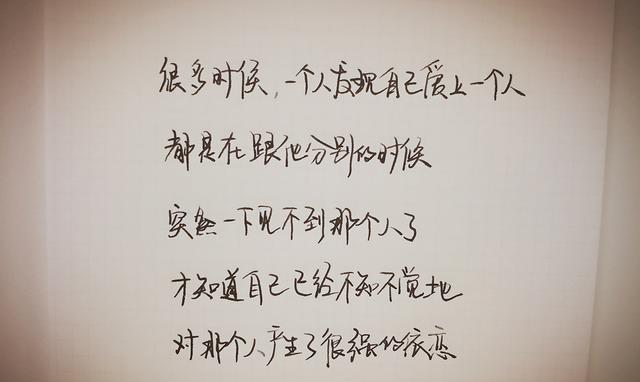 很多时候，一个人发现自己爱上一个人
都是在跟他分别的时候
突然一下见不到那个人了
才知道自己已经不知不觉地
对那个人产生了很强的依恋